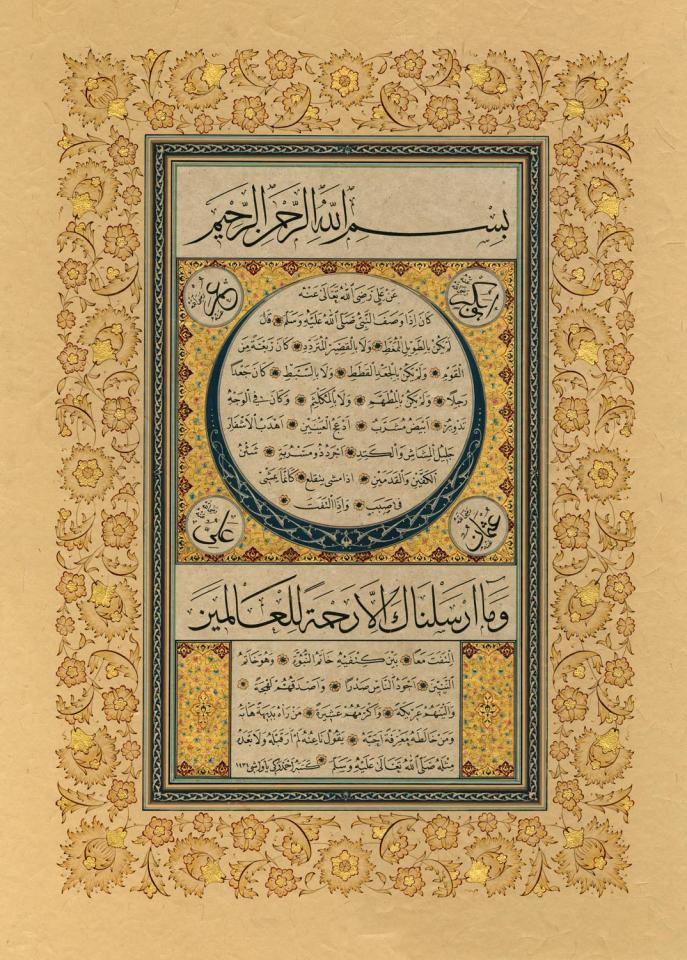 بسم الله الرحمن الرحيم
أبو بكر
عمر
عن علي رضي الله تعالى عنه
كان إذا وصف النبي صلى الله عليه وسلم قال
لم يكن بالطويل الممغط ولا بالقصير المتردد كان ربعة من
القوم ولم يكن بالجعد القطط ولا بالسبط كان جعدا
رجلا ولم يكن بالمطهم ولا بالمكلثم وكان في الوجه
تدوير أبيض مشرب أدعج العينين أهدب الأشفار
جليل المشاش والكتد أجرد ذو مسربة شثن
الكفين والقدمين إذا مشى يتقلع كأنما يمشي
في صبب وإذا التفت
عثمان
علي
وما أرسلناك إلا رحمة للعالمين
التفت معا بين كتفيه خاتم النبوة وهو خاتم
النبيين أجود الناس صدرا وأصدقهم لهجة
وألينهم عريكة وأكرمهم عشيرة من رآه بديهة هابه
ومن خالطه معرفة أحبه يقول ناعته لم أر قبله ولا بعده
مثله صلى الله تعالى عليه وسلم كتبه أحمد زكي